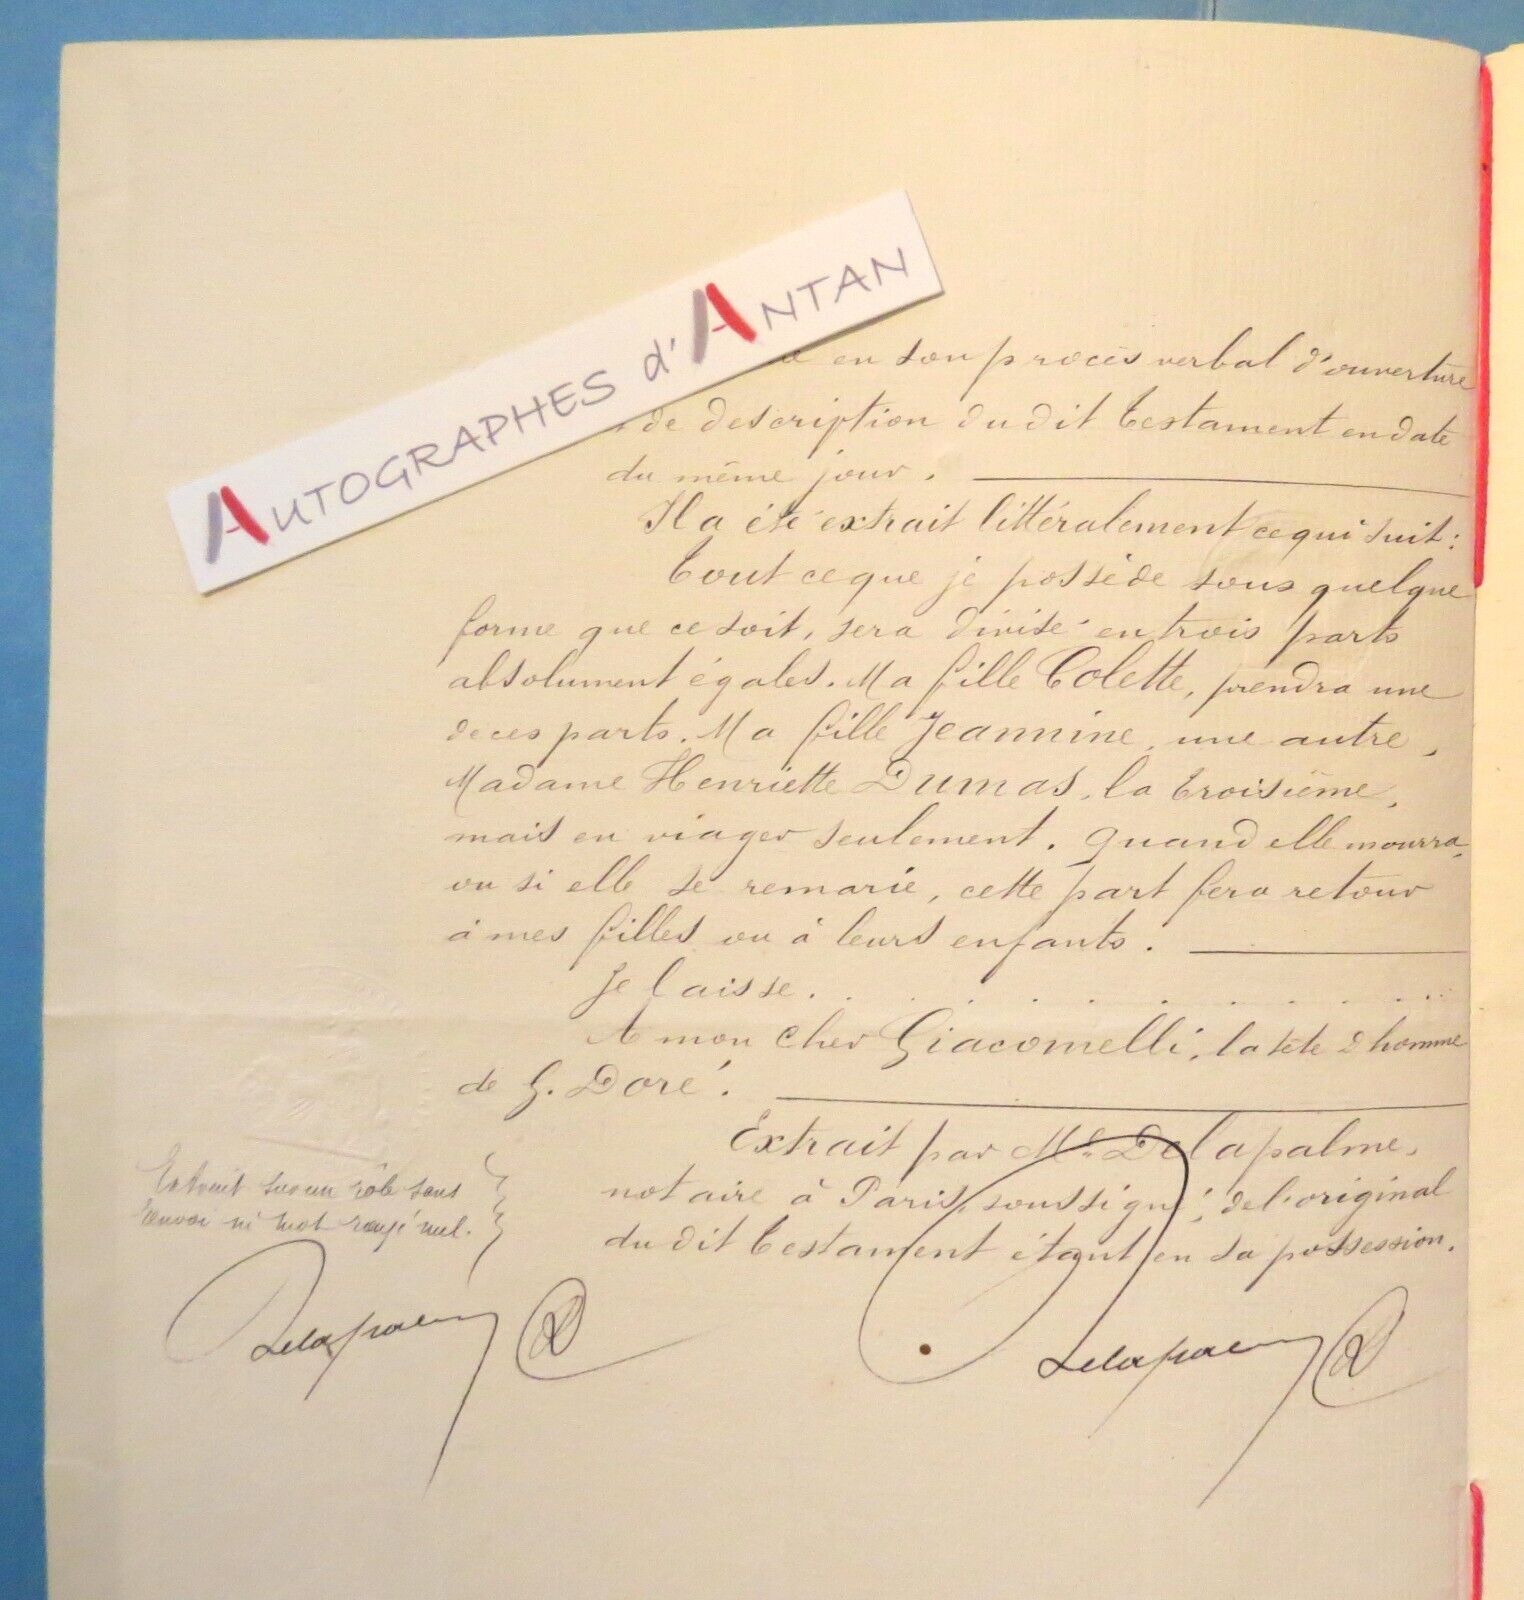 AUTOGRAPHES d'ANTAN
en son procès verbal d'ouverture
de description du dit testament en date
du même jour.
Il a été extrait littéralement ce qui suit:
Tout ce que je possède sous quelque
forme que ce soit, sera divisé en trois parts
absolument égales. Ma fille Colette, prendra une
de ces parts. Ma fille Jeannine, une autre,
Madame Henriette Dumas, la troisième,
mais en viager seulement. Quand elle mourra,
ou si elle se remarie, cette part fera retour
à mes filles ou à leurs enfants.
Je laisse. . . . . . . . . . . .
A mon cher Giacomelli, la tête d'homme
de G. Doré.
Extrait par Me Delapalme,
notaire à Paris, soussigné, de l'original
du dit testament étant en sa possession.
Extrait sur un rôle sans
renvoi ni mot rayé nul.
Delapalme
Delapalme